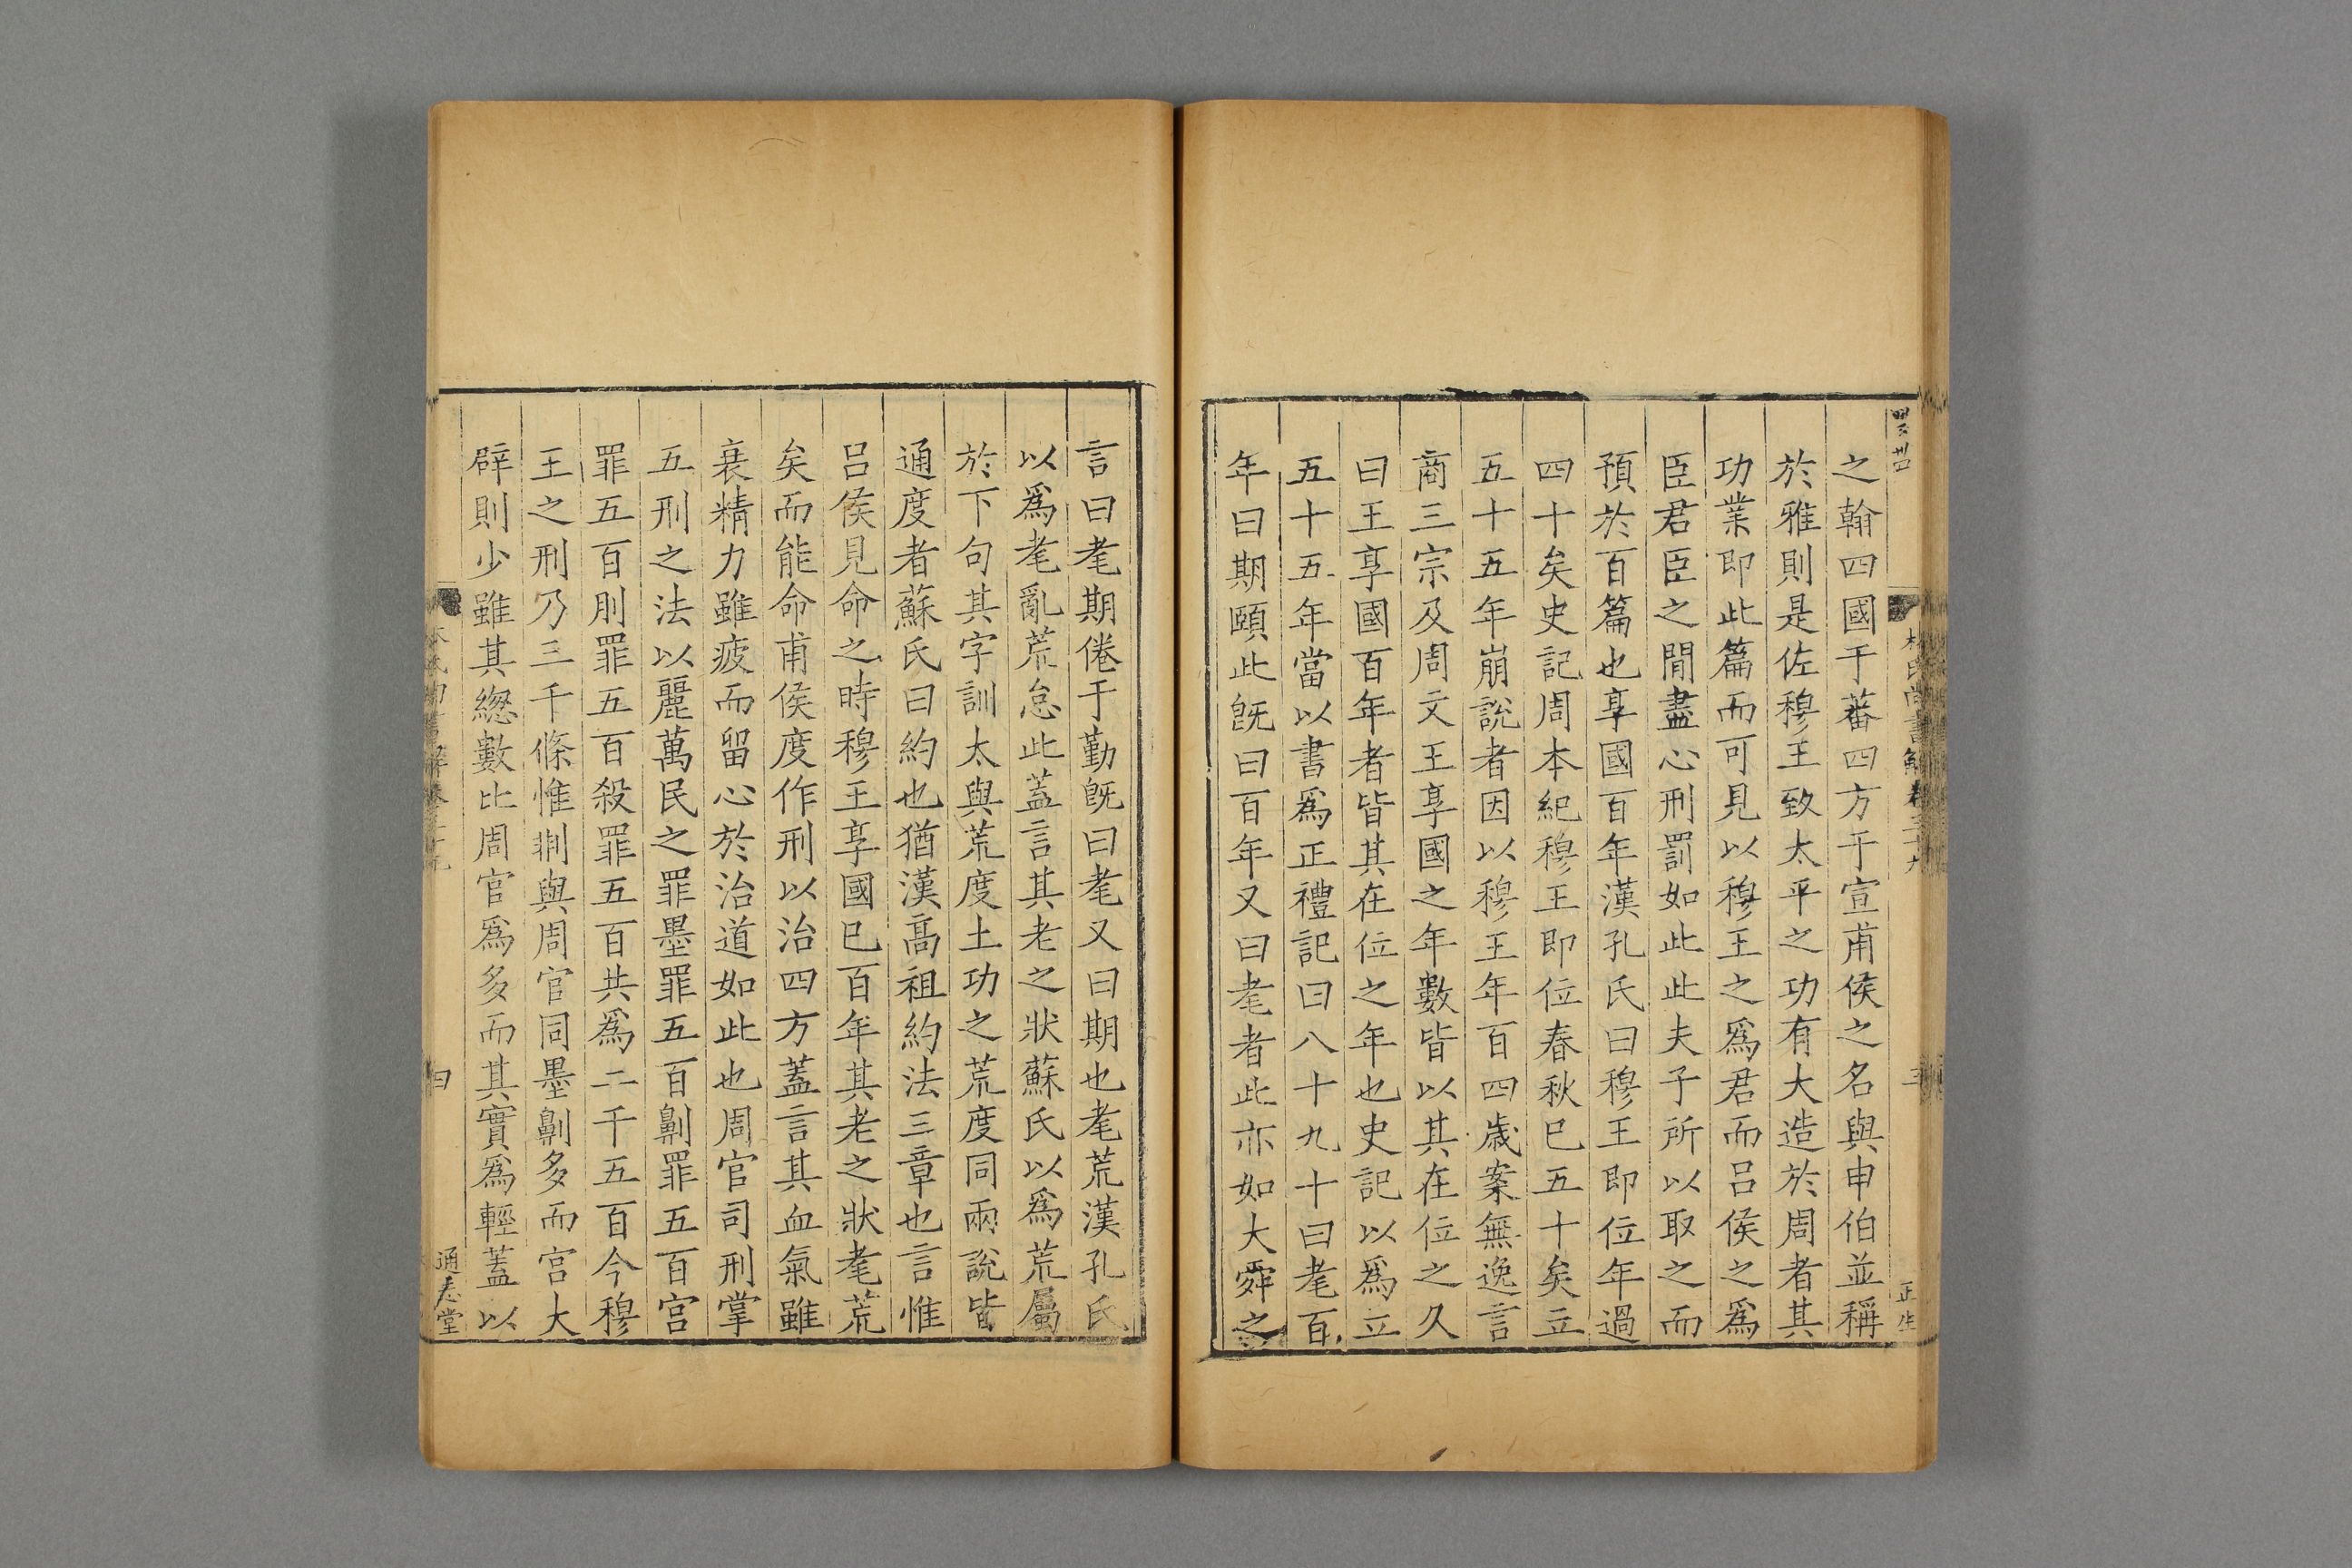 之翰四國于蕃四方于宣甫侯之名與申伯並稱
於雅則是佐穆王致太平之功有大造於周者其
功業即此篇而可見以穆王之爲君而呂侯之爲
臣君臣之閒盡心刑罰如此此夫子所以取之而
預於百篇也享國百年漢孔氏曰穆王即位年過
四十矣史記周本紀穆王即位春秋已五十矣立
五十五年崩說者因以穆王年百四歲案無逸言
商三宗及周文王享國之年數皆以其在位之久
曰王享國百年者皆其在位之年也史記以爲立
五十五年當以書爲正禮記曰八十九十曰耄百
年曰期頤此旣曰百年又曰耄者此亦如大舜之
林氏尚書解卷三十九
三
正生
言曰耄期倦于勤旣曰耄又曰期也耄荒漢孔氏
以爲耄亂荒怠此蓋言其老之狀蘇氏以爲荒屬
於下句其字訓太與荒度土功之荒度同兩說皆
通度者蘇氏曰約也猶漢高祖約法三章也言惟
呂侯見命之時穆王享國已百年其老之狀耄荒
矣而能命甫侯度作刑以治四方蓋言其血氣雖
衰精力雖疲而留心於治道如此也周官司刑掌
五刑之法以麗萬民之罪墨罪五百劓罪五百宮
罪五百刖罪五百殺罪五百共爲二千五百今穆
王之刑乃三千條惟剕與周官同墨劓多而宮大
辟則少雖其緫數比周官爲多而其實爲輕蓋以
四
通志堂